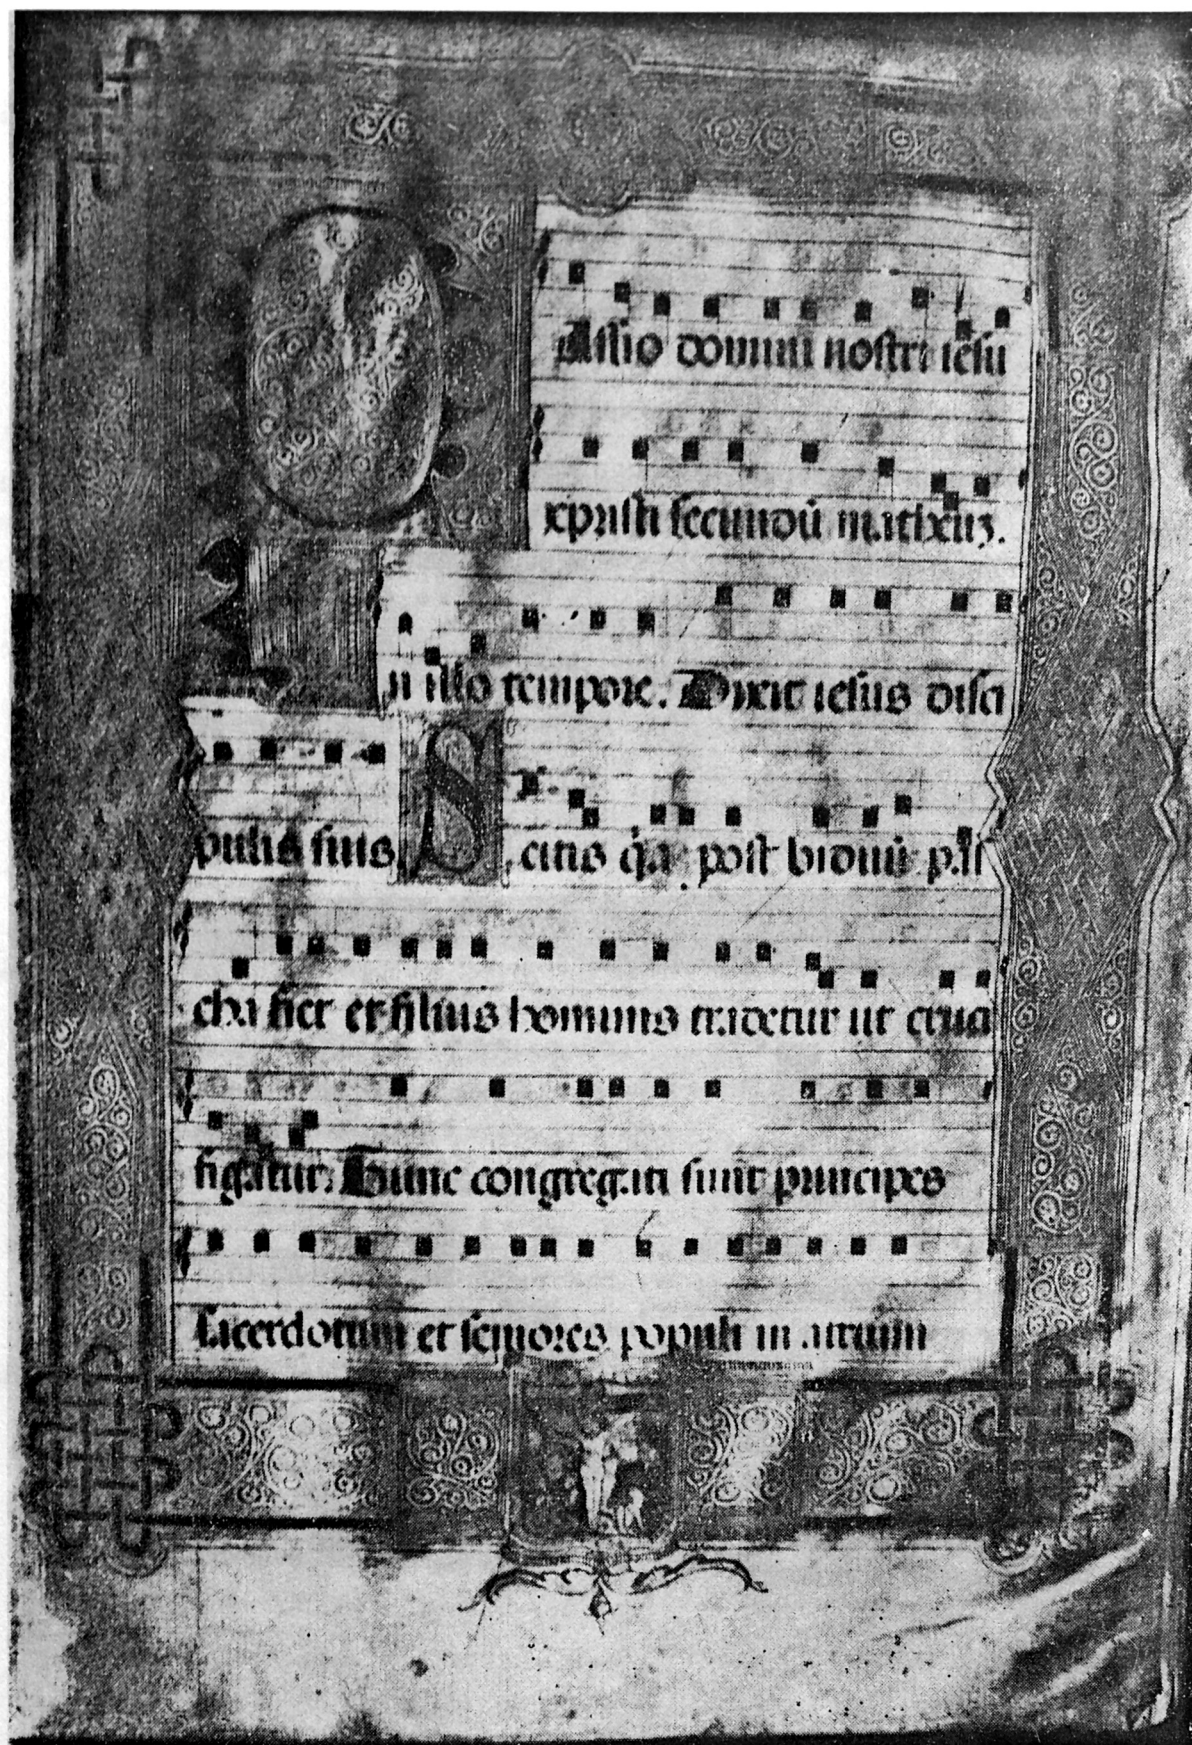 Passio domini nostri iesu
xpristi secundũ matheuz.
In illo tempore. Dixit iesus disci
pulis suis. Scitis q̇a post biduũ pas
cha fiet et filius hominis tradetur ut cruci
figatur. Tunc congregati sunt principes
sacerdotum et seniores populi in atrium